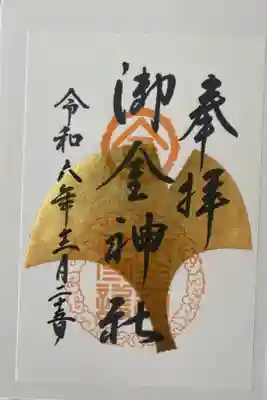 奉拝
御金神社
令和六年十二月二十五日